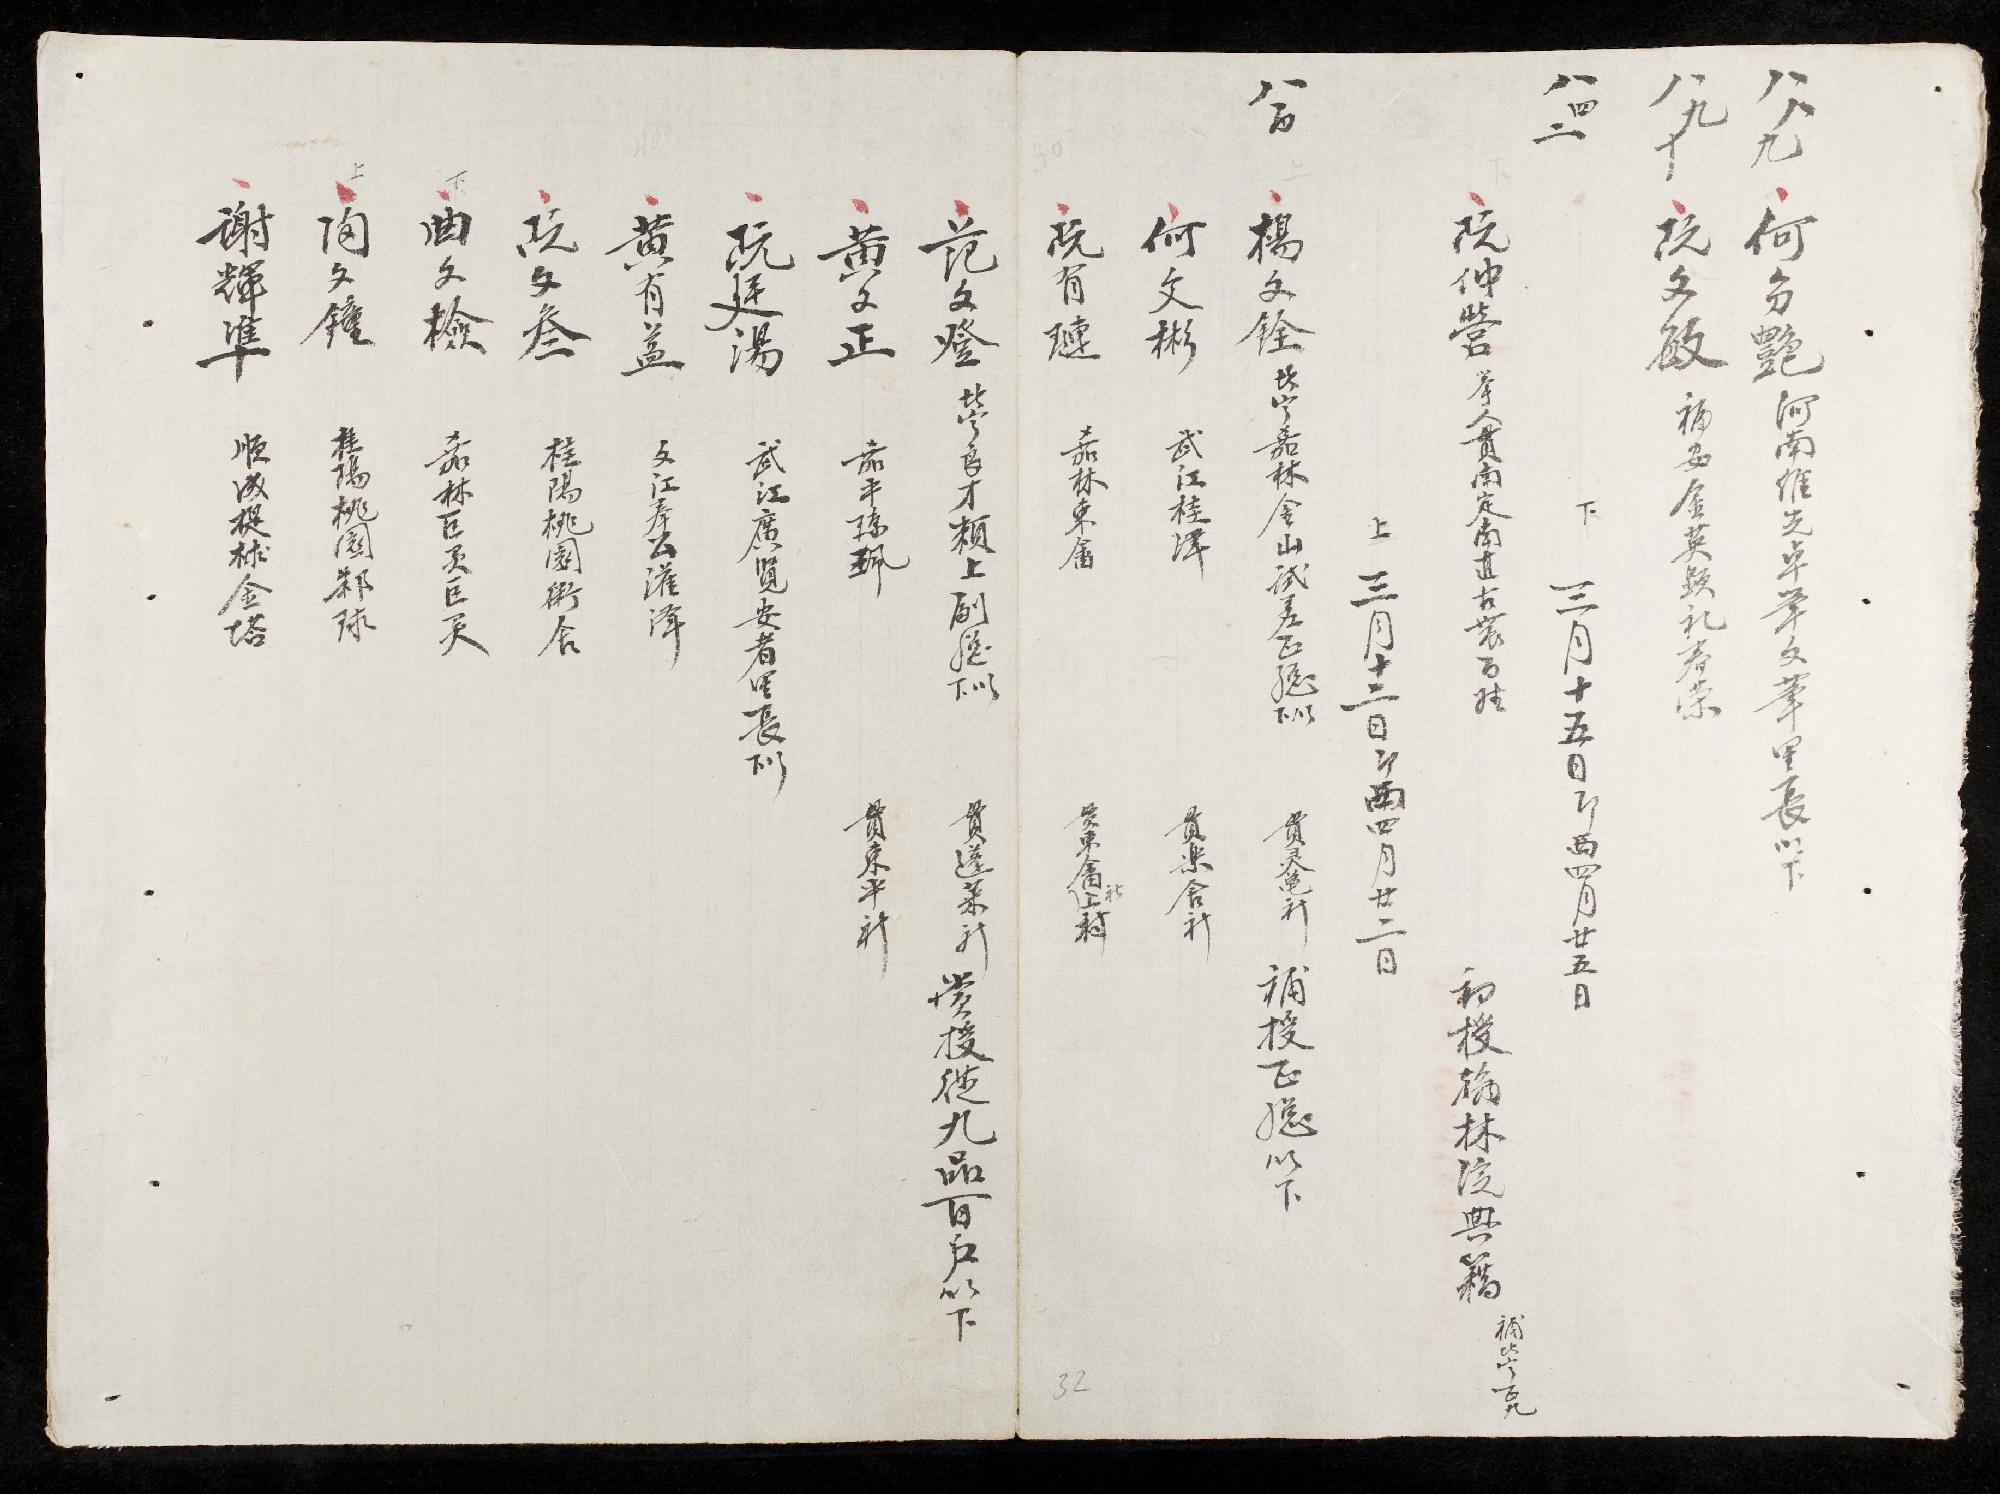 八八九 何芳艷 河南維先卓筆文筆里長以下
八九十 阮文敏 福安金英題礼春榮
下 三月十五日即西四月廿五日
八四二
阮仲營 举人貫南定南直古農百姓 初授翰林院典籍 補北宁百九
下
上 三月十二日即西四月廿二日
八百 楊文銓 北宁嘉林金山試差正總下以 貫灵龟社 補授正總以下
上
何文彬 武江桂澤 貫樂舍社
阮有璉 嘉林東畬 貫東畬社上村
30
32
范文燈 北宁良才賴上副總下以 貫蓬萊社 賞授從九品百户以下
黄文正 嘉平 貫東平社
阮廷湯 武江廣覽安者里長下以
黄有益 文江奉公濯澤
阮文叁 桂陽桃園術舍
曲文檢 嘉林巨灵巨灵
下
陶文鐘 桂陽桃園鄒球
上
谢輝準 順成提林金塔